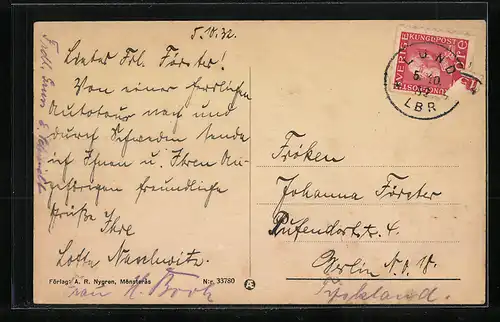 5.10.32.
Liebes Frl. Förster!
Von einer herrlichen
Autotour nach und
durch Schweden sende
ich Ihnen u. Ihren An-
gehörigen freundliche
Grüße! Ihre
Lotte
Förlag: A. R. Nygren, Mönsterås
N:r. 33780
A
Frau H.
SVERIGE
KUNGL. POST
LUND
5 10
32
LBR
Fröken
Johanna Förster
Pufendorfstr. 4.
Berlin N.O. 18
Tyskland.